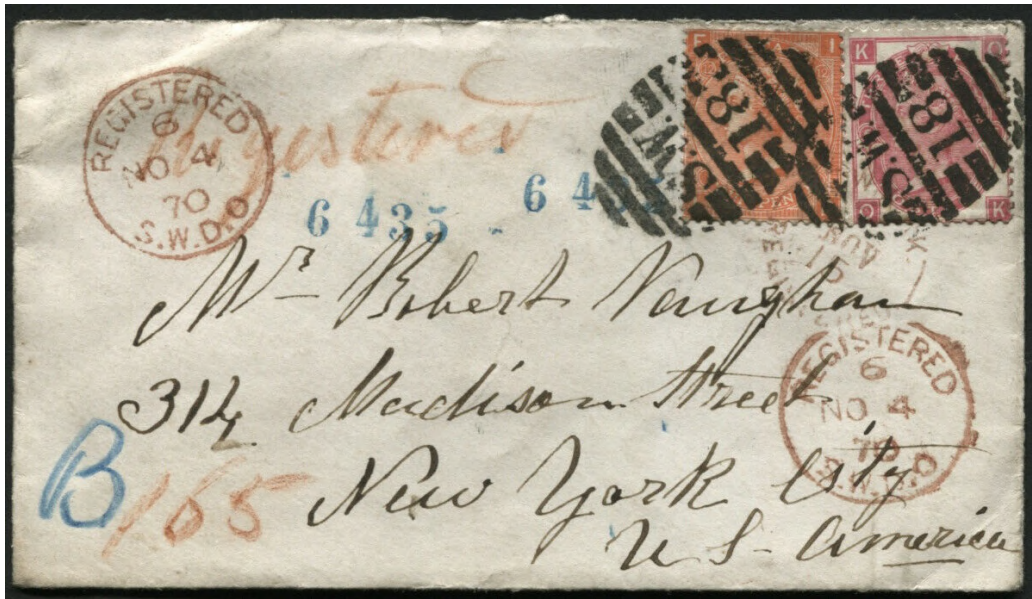 REGISTERED
6
NO 4
70
S.W.D.O
Registered
6 435
6 4
F A I
K Q
18
S.W.
18
S.W.
Q K
Mr Robert Vaughan
314 Madison Street
New York City
U S - America
REGISTERED
6
NO 4
70
S.W.D.O
B
165